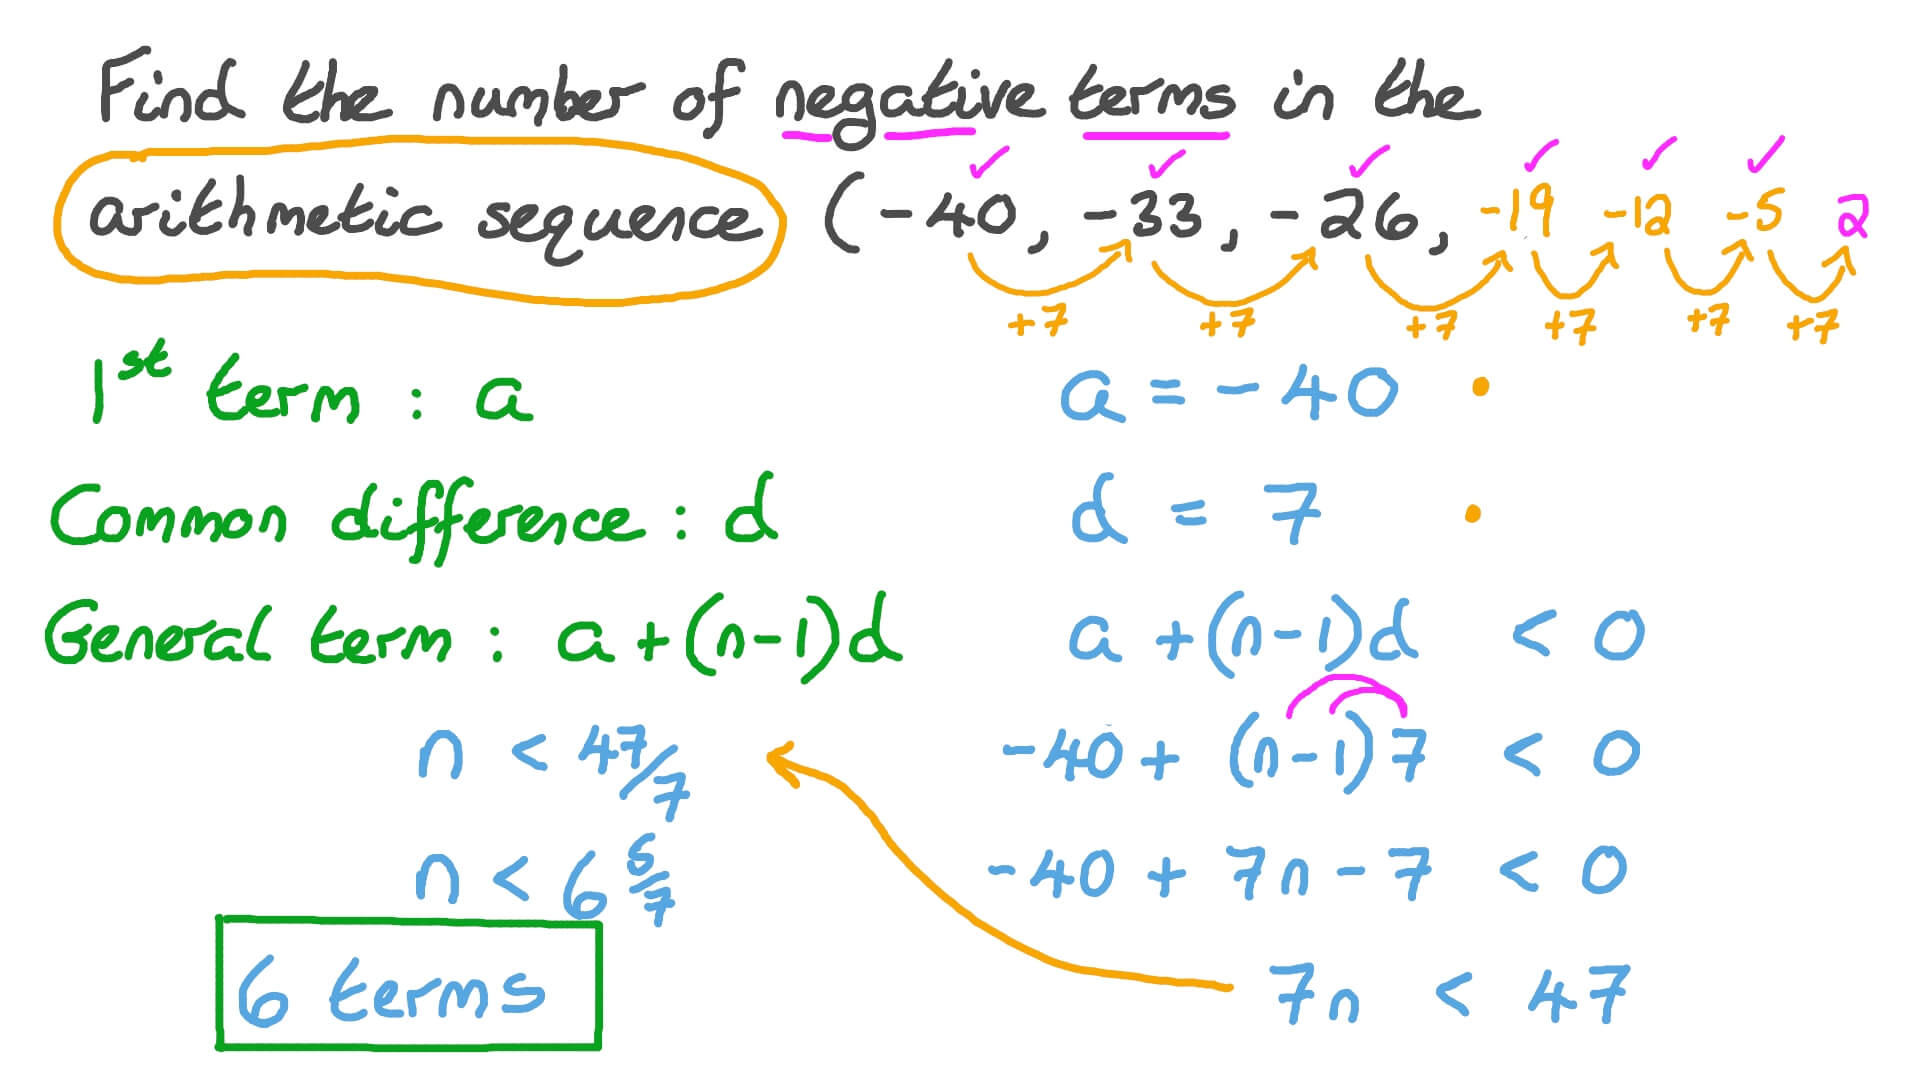 Find the number of negative terms in the
arithmetic sequence (-40, -33, -26, -19 -12 -5 2
+7 +7 +7 +7 +7 +7
1st term : a
a = -40
Common difference : d
d = 7
General term : a+(n-1)d
a +(n-1)d < 0
-40 + (n-1)7 < 0
-40 + 7n - 7 < 0
7n < 47
n < 47/7
n < 6 5/7
6 terms